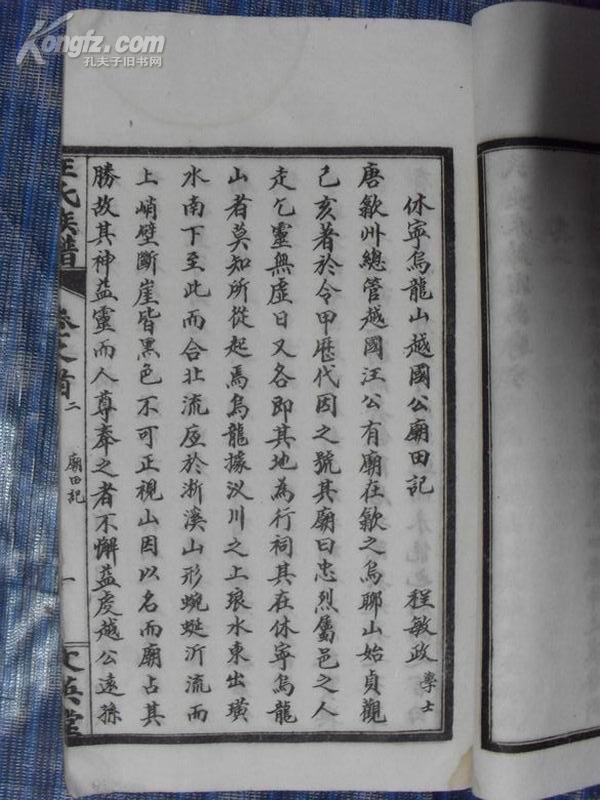 Kongfz.com
孔夫子旧书网
休寧烏龍山越國公廟田記　程敏政 學士
唐歙州總管越國汪公有廟在歙之烏聊山始貞觀
己亥著於令甲歷代因之號其廟曰忠烈舊邑之人
走乞靈無虛日又各即其地為行祠其在休寧烏龍
山者莫知所從起焉烏龍據汊川之上琅水東出璜
水南下至此而合北流应於浙溪山形蜿蜒沂流而
上峭壁斷崖皆黑色不可正視山因以名而廟占其
勝故其神益靈而人尊奉之者不懈益虔越公遠孫
汪氏族譜 卷之首 二 廟田記 一 文英堂